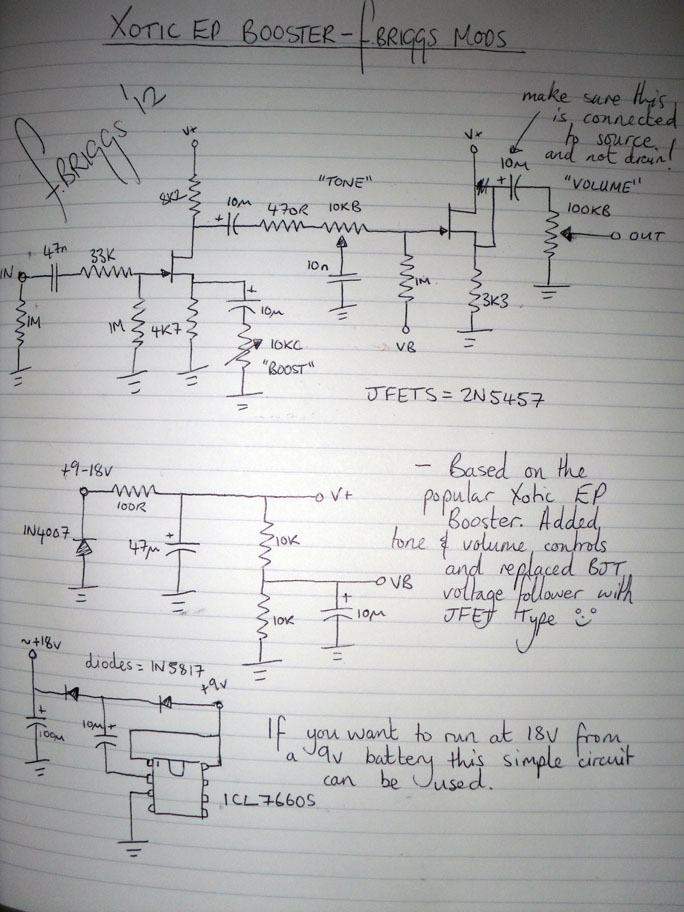 XOTIC EP BOOSTER - f.BRIGGS MODS
f.BRIGGS '12
make sure this
is connected
to source
and not drain!
V+
V+
8K2
10μ
470R
"TONE"
10KB
10μ
"VOLUME"
100KB
OUT
47n
33K
IN
1M
1M
4K7
10μ
10KC
"BOOST"
10n
1M
VB
3K3
JFETS = 2N5457
+9-18V
100R
V+
1N4007
47μ
10K
VB
10K
10μ
- Based on the
popular Xotic EP
Booster. Added
tone & volume controls
and replaced BJT
voltage follower with
JFET Type
~+18V
diodes = 1N5817
+9V
100μ
10μ
1
ICL7660S
If you want to run at 18V from
a 9V battery this simple circuit
can be used.